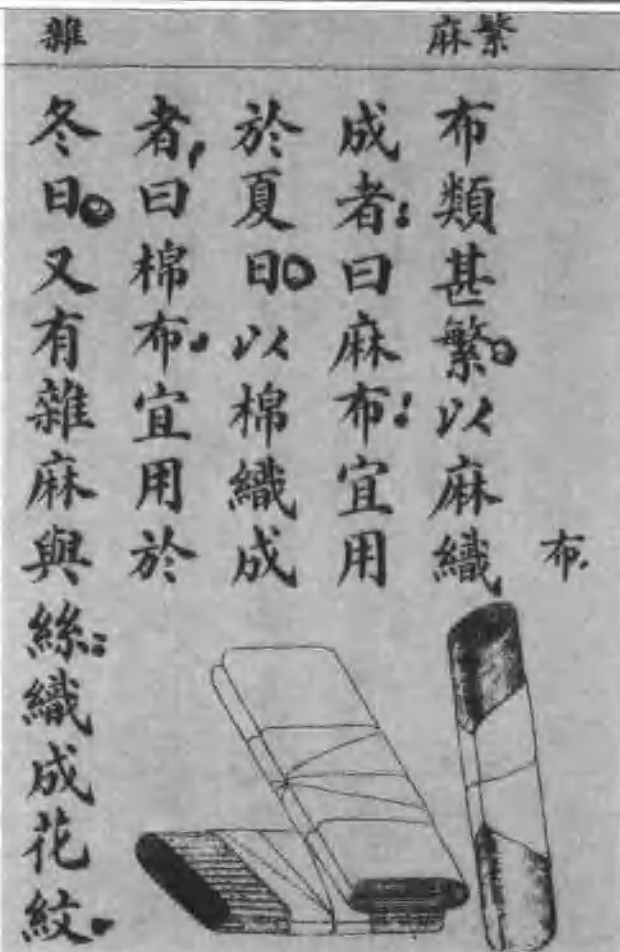 繁麻
雜
布.
布類甚繁。以麻織
成者:曰麻布:宜用
於夏日。以棉織成
者,曰棉布.宜用於
冬日。又有雜麻與絲:織成花紋.